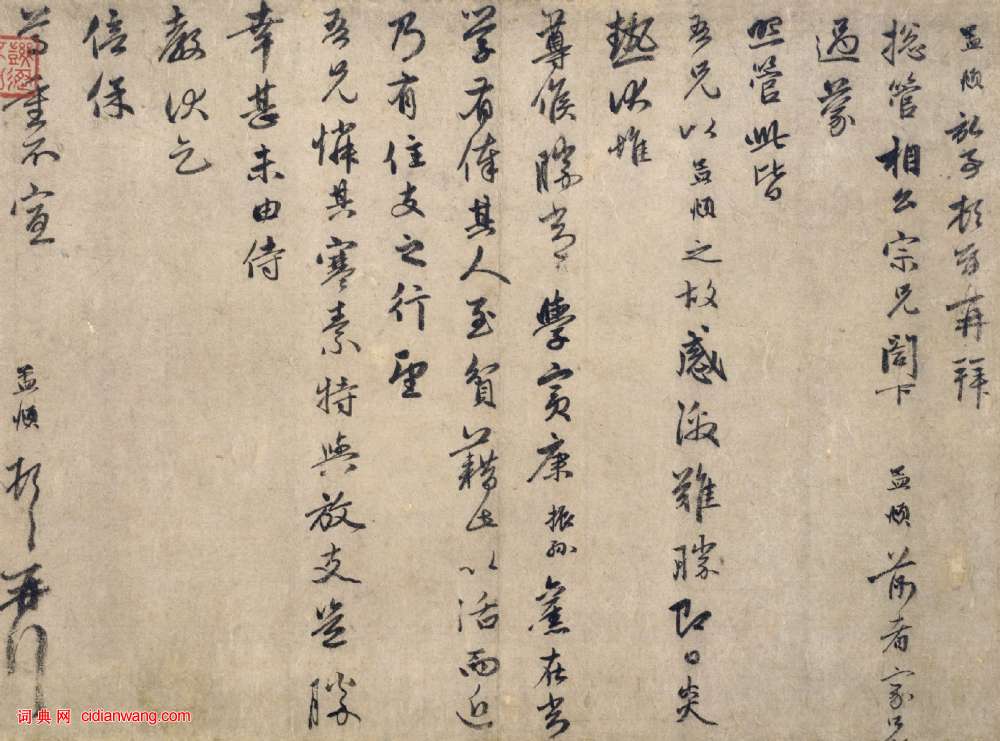 孟頫記事頓首再拜
總管相公宗兄閤下 孟頫前者家兄
過蒙
照管此皆
吾兄以孟頫之故感激難勝即日炎
熱伏惟
尊候勝常 學賓康振孫舊在常
學有俸其人至貧藉此以活而近
乃有住支之行望
吾兄憐其寒素特與放支豈勝
幸甚未由侍
教伏乞
倍保
尊重不宣 孟頫頓首再拜
词典网 cidianwang.com